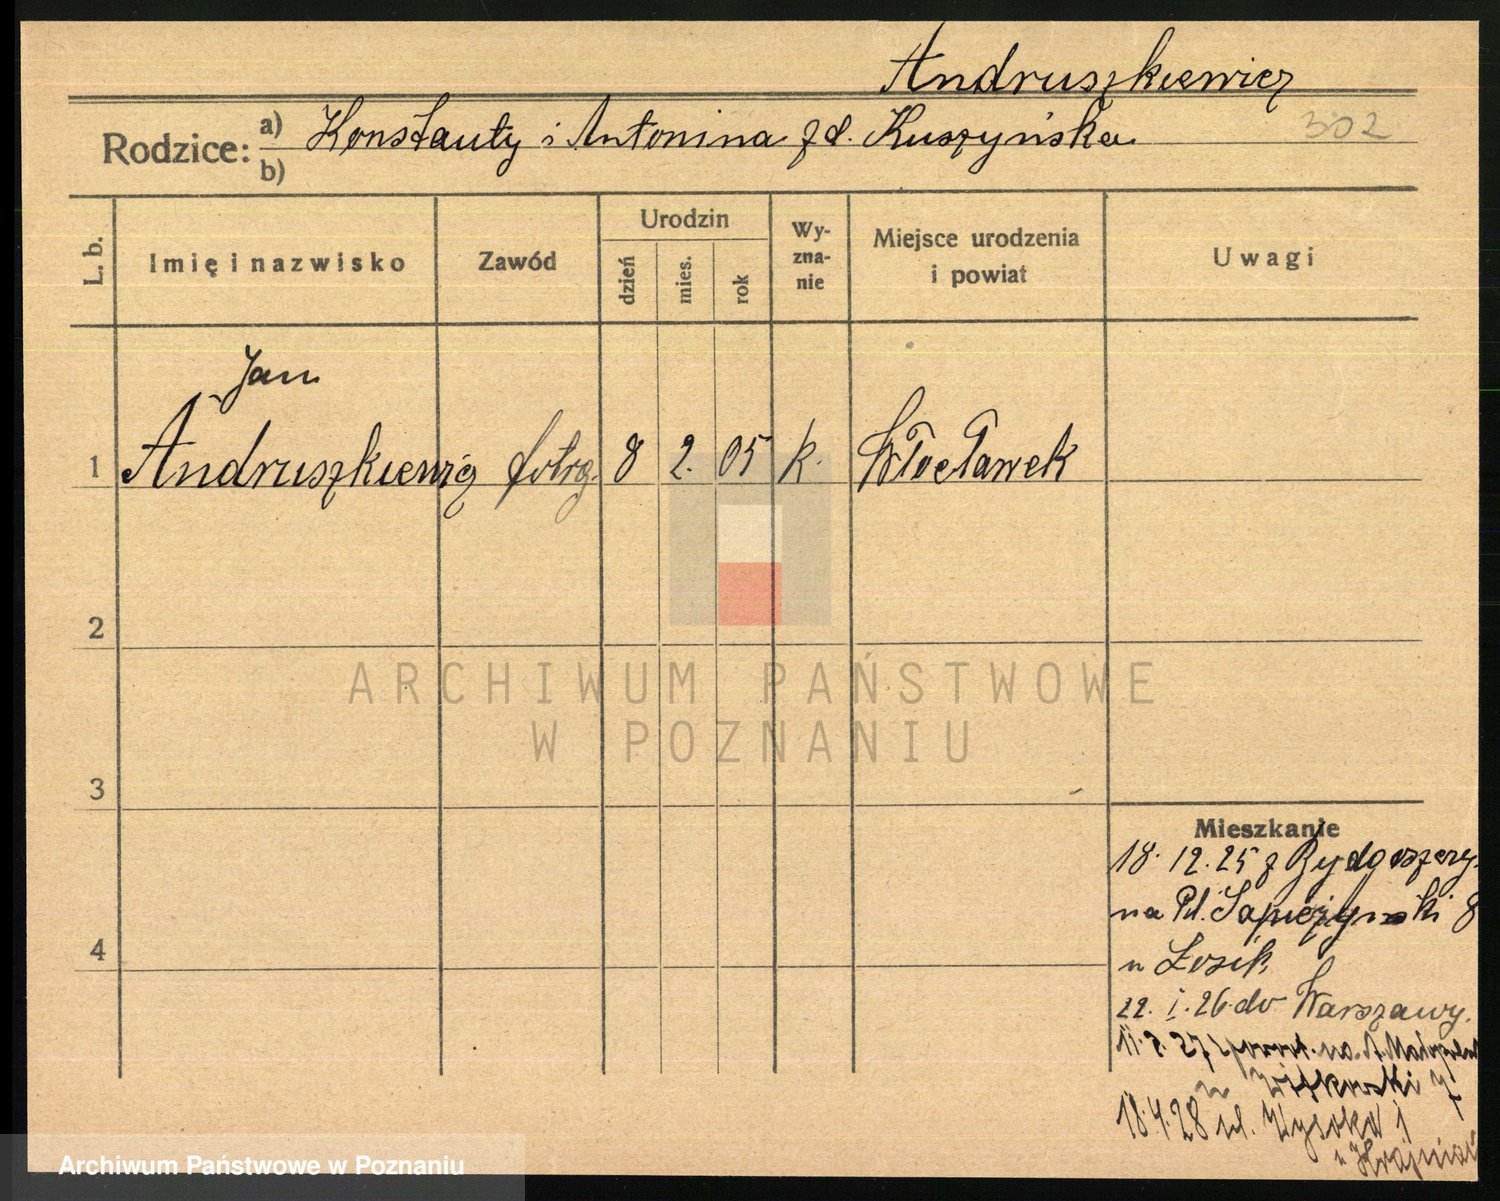 Andruszkiewicz
Rodzice: a) Konstanty i Antonina zd. Kuszyńska 302
b)
L. b.
Imię i nazwisko
Zawód
Urodzin
dzień
mies.
rok
Wy-
zna-
nie
Miejsce urodzenia
i powiat
Uwagi
Jan
1 Andruszkiewicz fotrg. 8 2. 05 k. Włocławek
2
ARCHIWUM PAŃSTWOWE
W POZNANIU
3
4
Mieszkanie
18. 12. 25 z Bydgoszczy
na Pl. Sapieżyński 8
u Łosik
22. I. 26 do Warszawy.
18.4.28 ul. Wysoka 1
Archiwum Państwowe w Poznaniu